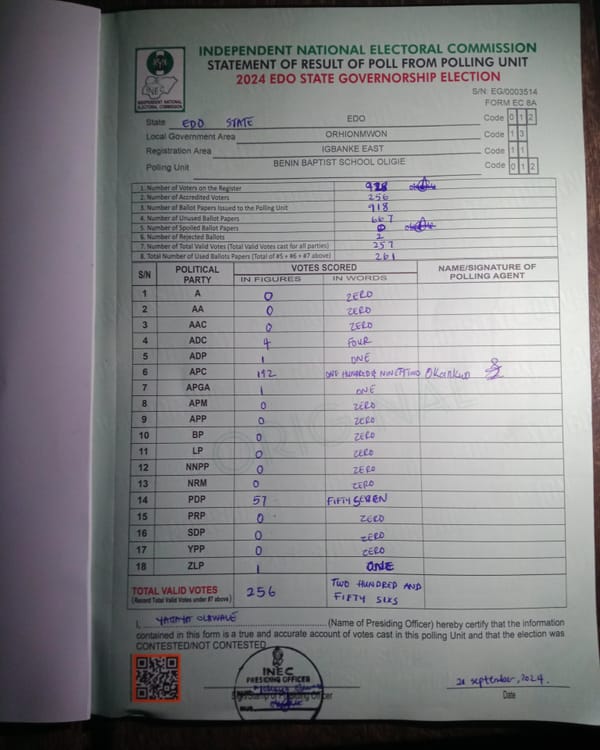 INDEPENDENT NATIONAL ELECTORAL COMMISSION
STATEMENT OF RESULT OF POLL FROM POLLING UNIT
2024 EDO STATE GOVERNORSHIP ELECTION
INEC
INDEPENDENT NATIONAL
ELECTORAL COMMISSION
S/N: EG/0003514
FORM EC 8A
State EDO STATE EDO Code 0 1 2
Local Government Area ORHIONMWON Code 1 3
Registration Area IGBANKE EAST Code 1 1
Polling Unit BENIN BAPTIST SCHOOL OLIGIE Code 0 1 2
1. Number of Voters on the Register 928
2. Number of Accredited Voters 256
3. Number of Ballot Papers Issued to the Polling Unit 918
4. Number of Unused Ballot Papers 667
5. Number of Spoiled Ballot Papers 0
6. Number of Rejected Ballots 2
7. Number of Total Valid Votes (Total Valid Votes cast for all parties) 257
8. Total Number of Used Ballots Papers (Total of #5 + #6 + #7 above) 261
S/N POLITICAL PARTY VOTES SCORED NAME/SIGNATURE OF POLLING AGENT
IN FIGURES IN WORDS
1 A 0 ZERO
2 AA 0 ZERO
3 AAC 0 ZERO
4 ADC 4 FOUR
5 ADP 1 ONE
6 APC 192 ONE HUNDRED & NINETY TWO
7 APGA 1 ONE
8 APM 0 ZERO
9 APP 0 ZERO
10 BP 0 ZERO
11 LP 0 ZERO
12 NNPP 0 ZERO
13 NRM 0 ZERO
14 PDP 57 FIFTY SEVEN
15 PRP 0 ZERO
16 SDP 0 ZERO
17 YPP 0 ZERO
18 ZLP 1 ONE
TOTAL VALID VOTES 256 TWO HUNDRED AND
(Record Total Valid Votes under #7 above) FIFTY SIXS
I, ...(Name of Presiding Officer) hereby certify that the information
contained in this form is a true and accurate account of votes cast in this polling Unit and that the election was
CONTESTED/NOT CONTESTED
INEC
PRESIDING OFFICER
Signature of Presiding Officer
21 september, 2024.
Date
ORIGINAL